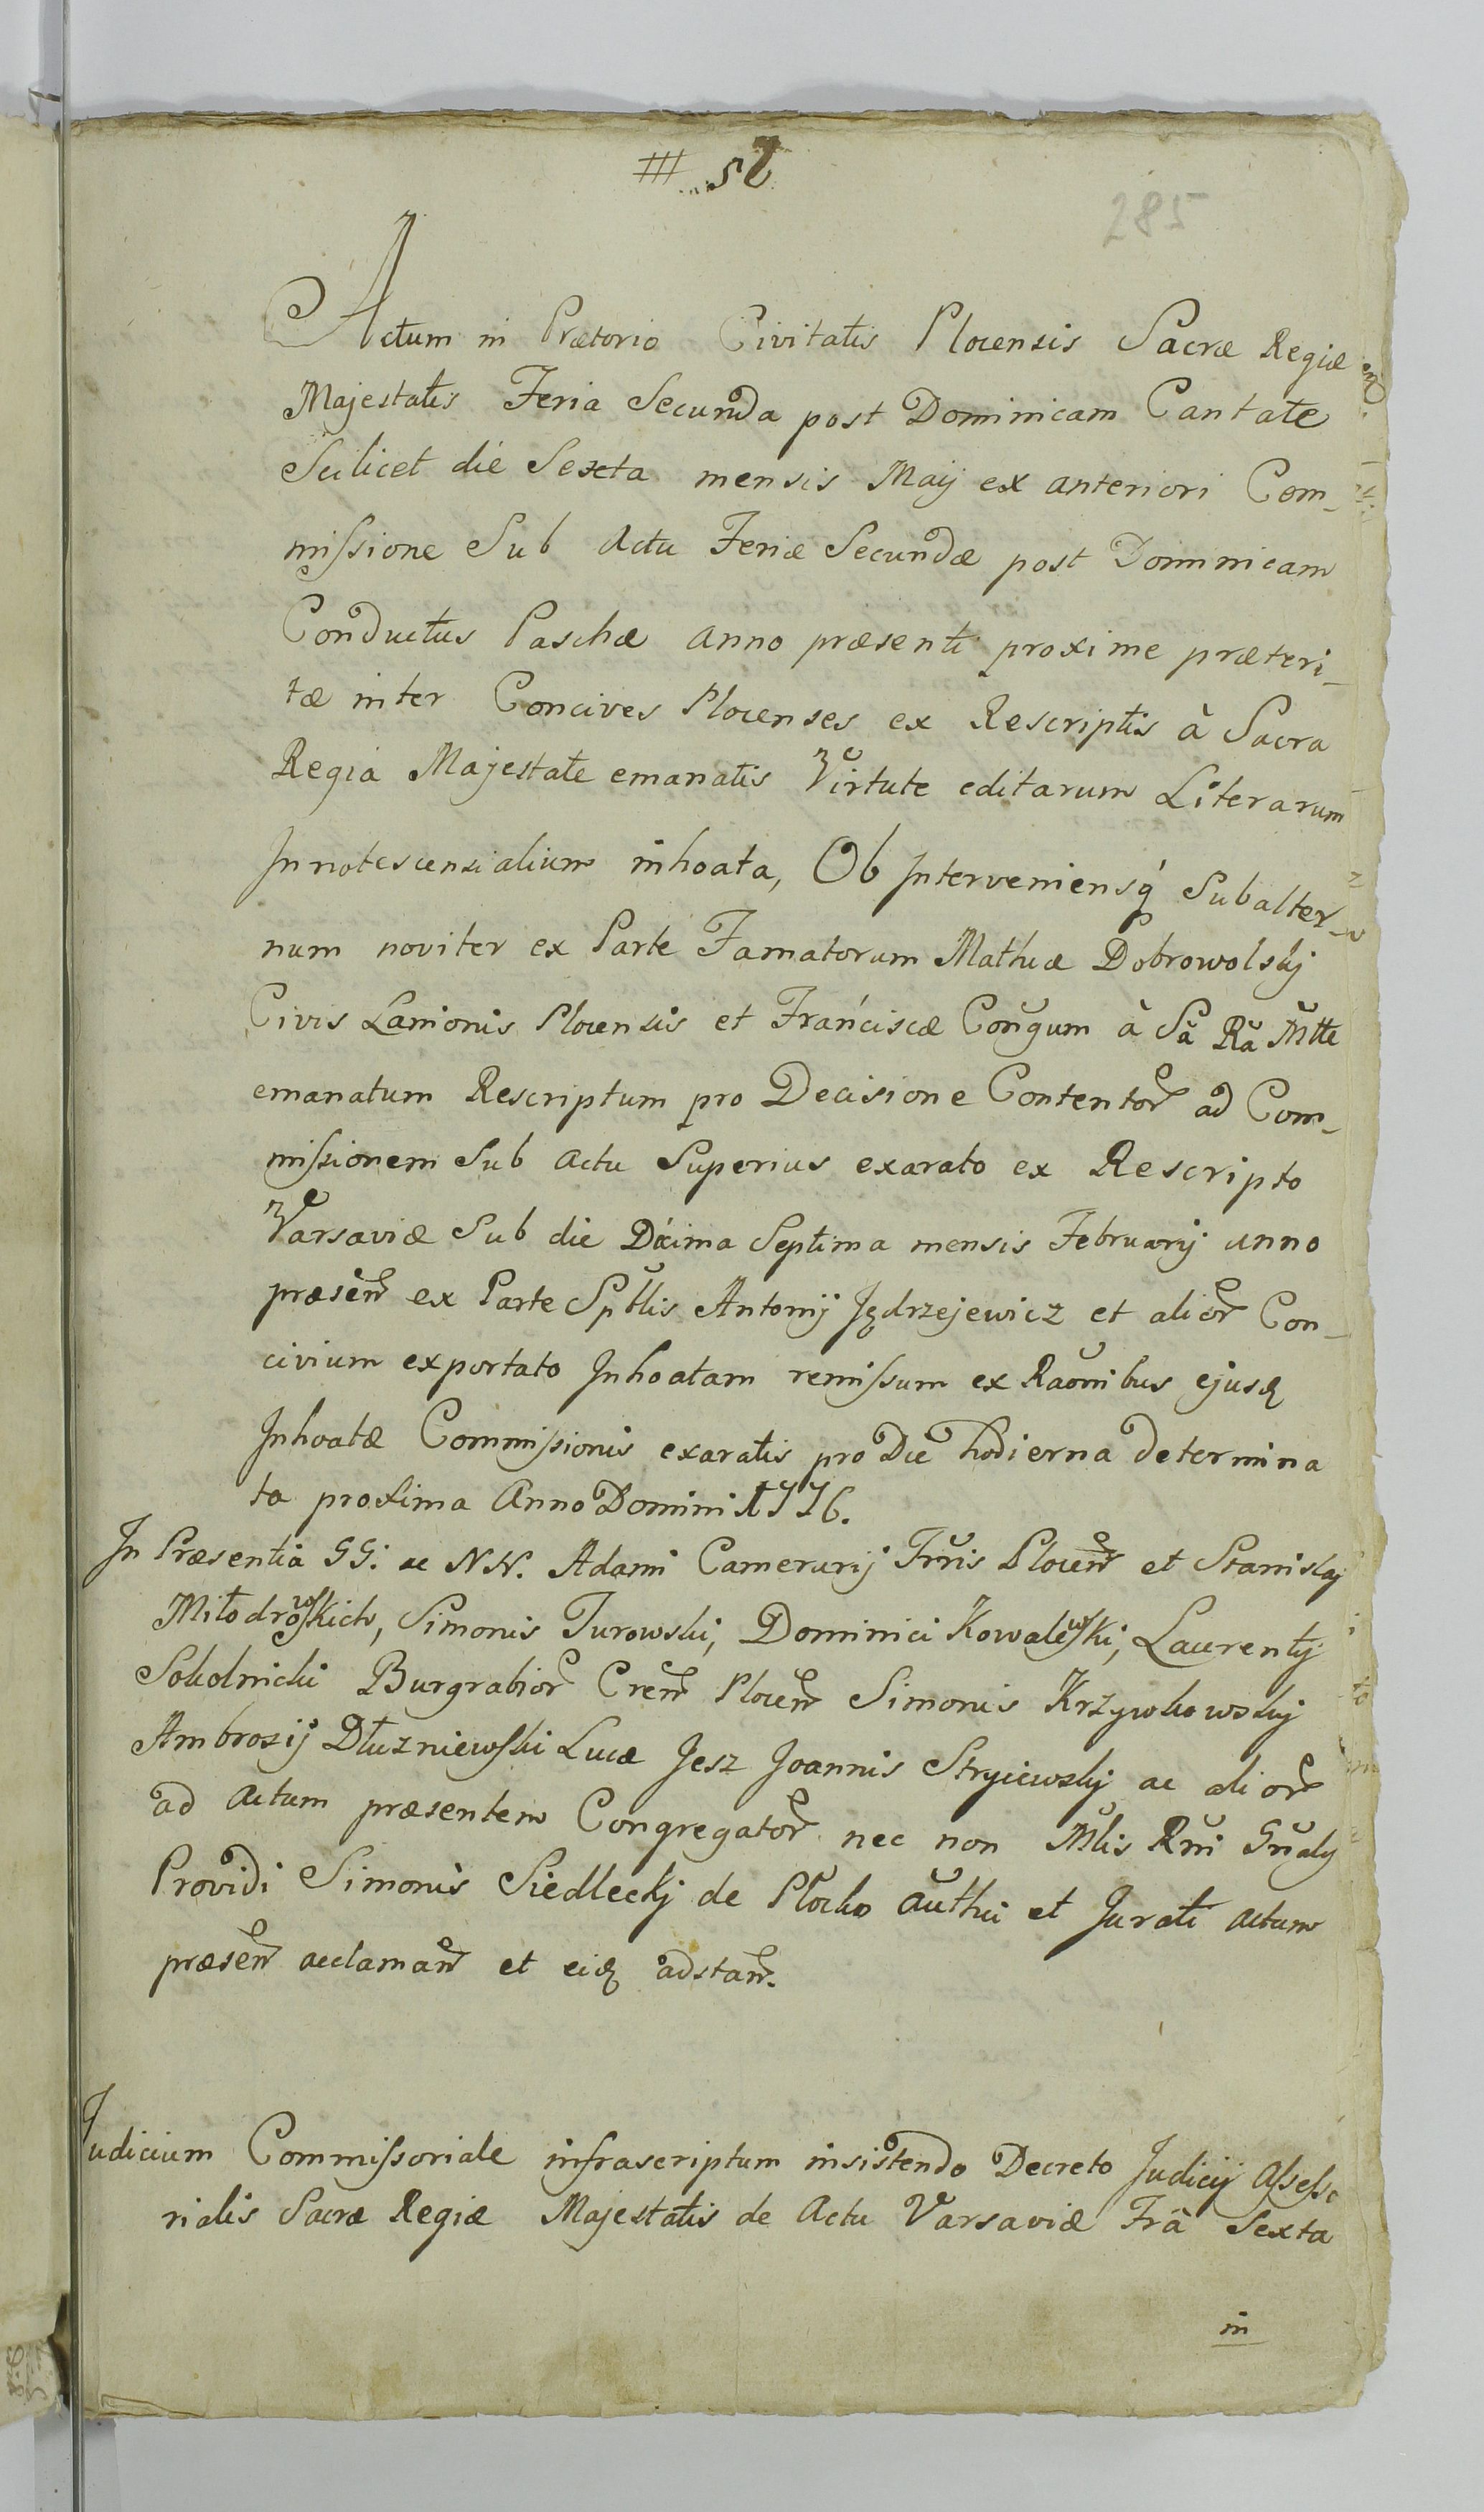 285
Actum in Prætorio Civitatis Plocensis Sacræ Regiæ
Majestatis Feria Secunda post Dominicam Cantate
Scilicet die Sexta mensis Maij ex anteriori Com-
missione Sub Actu Feriæ Secundæ post Dominicam
Conductus Paschæ anno præsenti proxime præteri-
tæ inter Concives Plocenses ex Rescriptis à Sacra
Regia Majestate emanatis Virtute editarum Literarum
Innotescensialium inhoata, Ob Interveniensq́ Subalter-
num noviter ex Parte Famatorum Mathiæ Dobrowolskj
Civis Lanionis Plocensis et Franciscæ Conğum à Sa Ra Mtte
emanatum Rescriptum pro Decisione Contentor ad Com-
missionem Sub actu Superius exarato ex Rescripto
Varsaviæ Sub die Décima Septima mensis Februarij anno
præsen ex Parte Sptlis Antonij Jędrzejewicz et alior Con-
civium exportato Inhoatam remissum ex Raõnibus ejusq
Inhoatæ Commissionis exaratis pro Die hodierna determina
ta proxima Anno Domini 1776.
In Præsentia GG: ac NN. Adami Camerarij Trris Plocen et Stanislaj
Miłodrowskich, Simonis Turowski, Dominici Kowalewski, Laurentij
Sokolnicki Burgrabior Cren Plocen Simonis Krzywkowskj
Ambrosij Dłuzniewski Lucæ Jesz Joannis Stryiewskj ac alior
ad Actum præsentem Congregator nec non Mlis Rni Gnalis
Providi Simonis Siedleckj de Płocko authci et Jurati actum
præsen acclaman et eidq adstan.
Judicium Commissoriale infrascriptum insistendo Decreto Judicij Assesso
rialis Sacræ Regiæ Majestatis de Actu Varsaviæ Fra Sexta
in